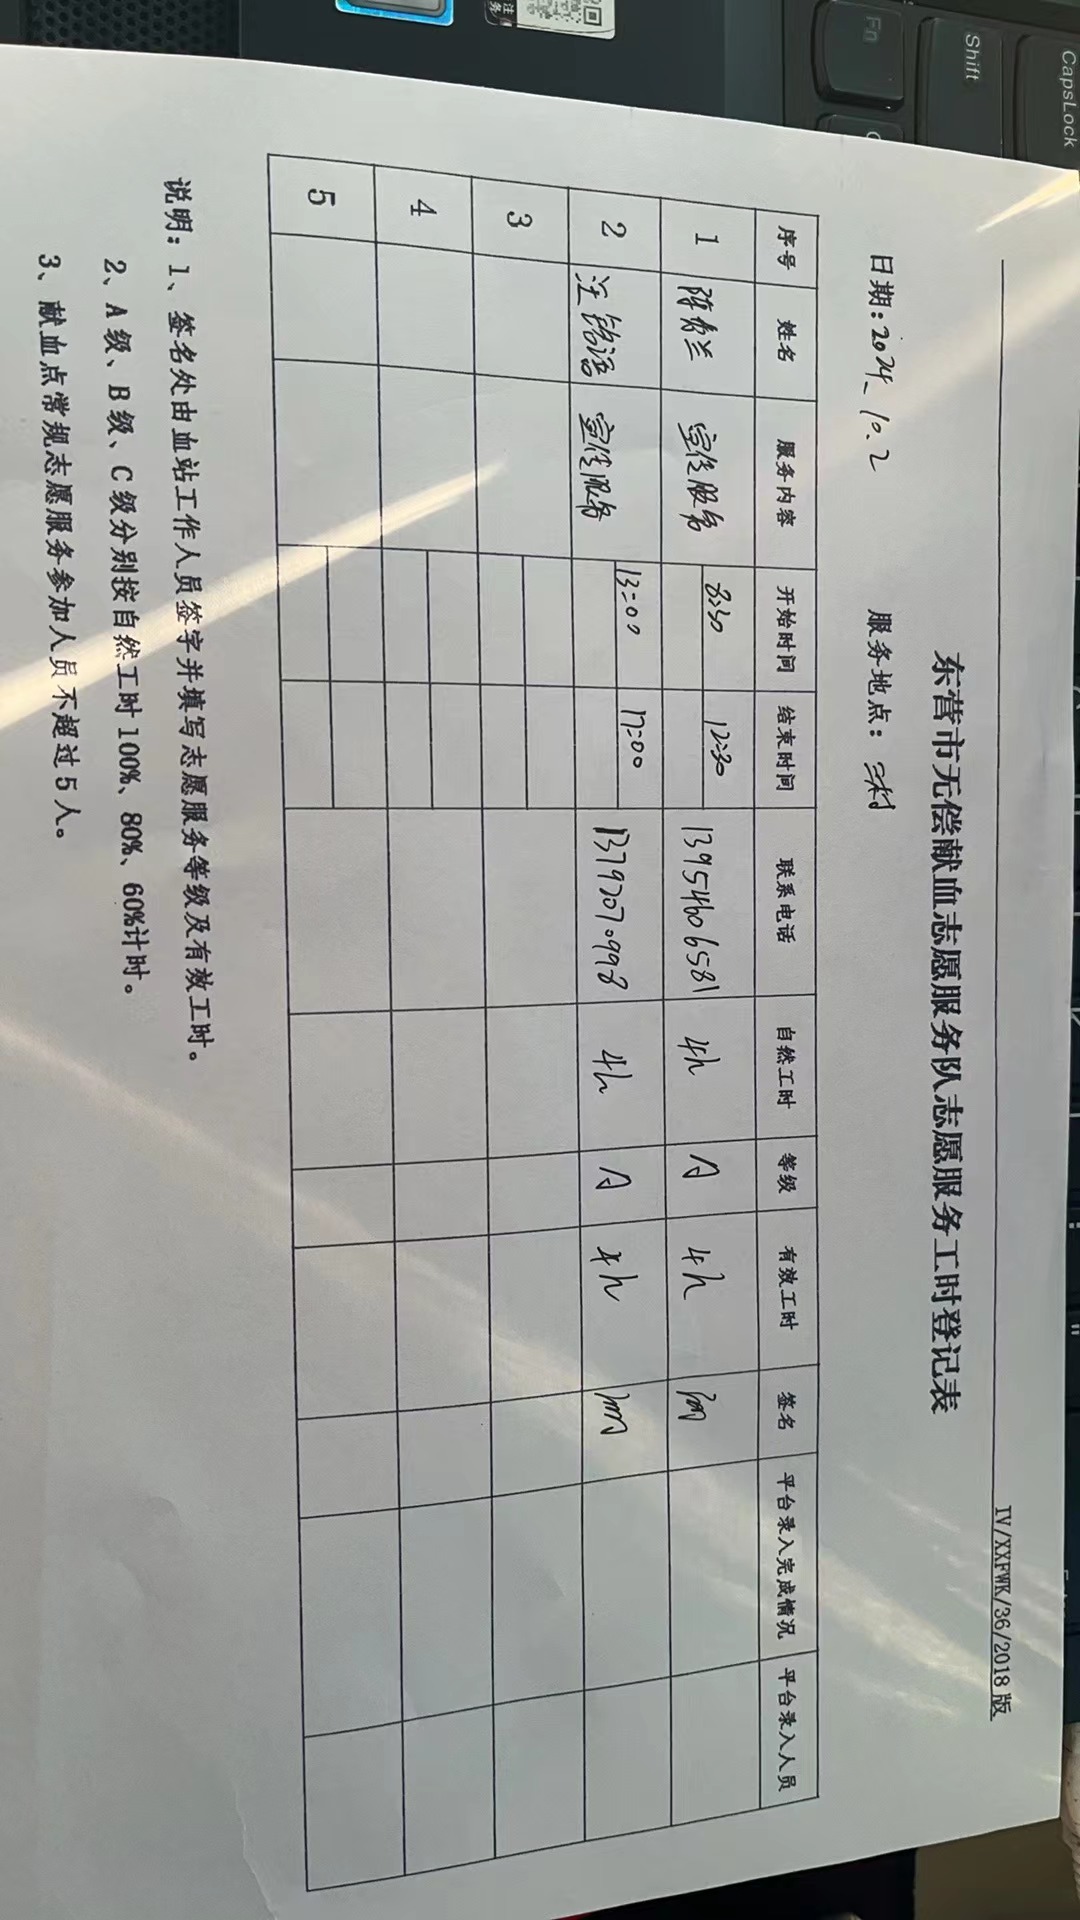 IV/XXFWK/36/2018版
东营市无偿献血志愿服务队志愿服务工时登记表
日期:2024.10.2 服务地点:
序号 姓名 服务内容 开始时间 结束时间 联系电话 自然工时 等级 有效工时 签名 平台录入完成情况 平台录入人员
1 陈秀兰 宣传服务 8:30 12:30 13954606581 4h A 4h
2 汪铭语 宣传服务 13:00 17:00 13792070998 4h A 4h
3
4
5
说明:1、签名处由血站工作人员签字并填写志愿服务等级及有效工时。
2、A级、B级、C级分别按自然工时100%、80%、60%计时。
3、献血点常规志愿服务参加人员不超过5人。
CapsLock
Shift
Fn